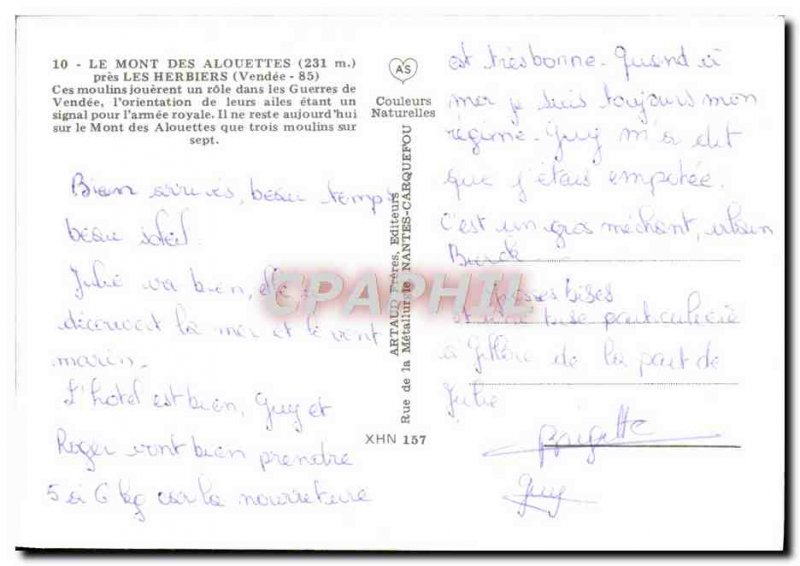 10 - LE MONT DES ALOUETTES (231 m.)
près LES HERBIERS (Vendée - 85)
Ces moulins jouèrent un rôle dans les Guerres de
Vendée, l'orientation de leurs ailes étant un
signal pour l'armée royale. Il ne reste aujourd'hui
sur le Mont des Alouettes que trois moulins sur
sept.
Bien arrivés, beau temps
beau soleil.
Julie va bien, elle
découvert la mer et le vent
marin.
L'hotel est bien, Guy et
Roger vont bien prendre
5 à 6 kg car la nourreture
AS
Couleurs
Naturelles
ARTAUD Frères, Editeurs
Rue de la Métallurgie NANTES-CARQUEFOU
XHN 157
est très bonne. Quand à
mer je suis toujours mon
régime. Guy m'a dit
que j'étais empotée.
C'est un gros méchant,
Grosses bises
et une bise particulière
à de la part de
Julie
Brigitte
Guy
CPAPHIL